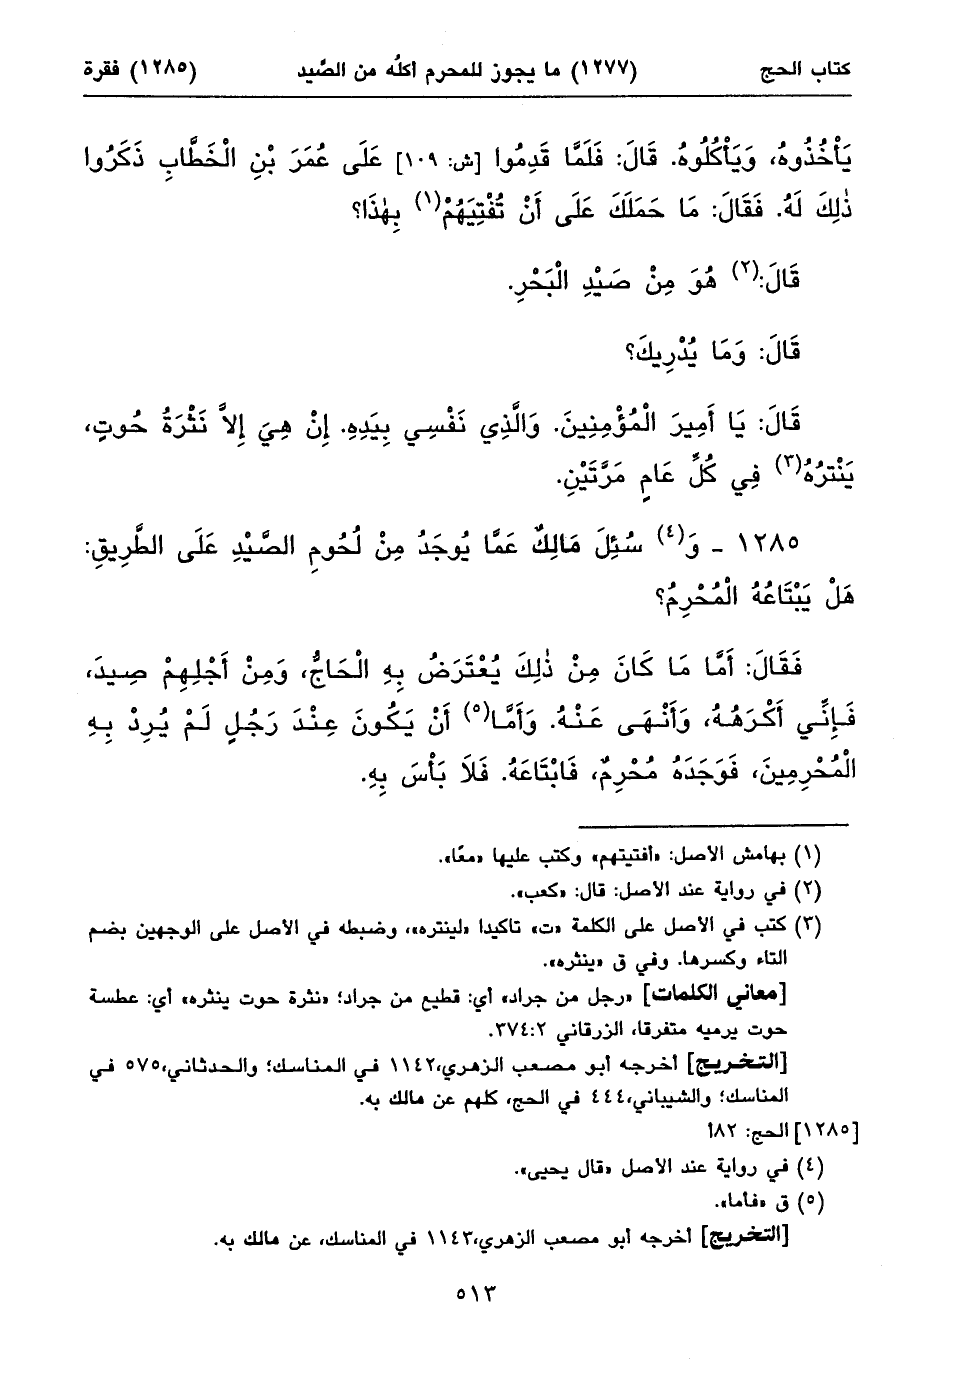 كتاب الحج (١٢٧٧) ما يجوز للمحرم أكله من الصَّيد (١٢٨٥) فقرة
يَأْخُذُوهُ، وَيَأْكُلُوهُ. قَالَ: فَلَمَّا قَدِمُوا [ش: ١٠٩] عَلَى عُمَرَ بْنِ الْخَطَّابِ ذَكَرُوا
ذٰلِكَ لَهُ. فَقَالَ: مَا حَمَلَكَ عَلَى أَنْ تُفْتِيَهُمْ(١) بِهٰذَا؟
قَالَ:(٢) هُوَ مِنْ صَيْدِ الْبَحْرِ.
قَالَ: وَمَا يُدْرِيكَ؟
قَالَ: يَا أَمِيرَ الْمُؤْمِنِينَ. وَالَّذِي نَفْسِي بِيَدِهِ. إِنْ هِيَ إِلاَّ نَثْرَةُ حُوتٍ،
يَنْثرُهُ(٣) فِي كُلِّ عَامٍ مَرَّتَيْنِ.
١٢٨٥ - وَ(٤) سُئِلَ مَالِكٌ عَمَّا يُوجَدُ مِنْ لُحُومِ الصَّيْدِ عَلَى الطَّرِيقِ:
هَلْ يَبْتَاعُهُ الْمُحْرِمُ؟
فَقَالَ: أَمَّا مَا كَانَ مِنْ ذٰلِكَ يُعْتَرَضُ بِهِ الْحَاجُّ، وَمِنْ أَجْلِهِمْ صِيدَ،
فَإِنِّي أَكْرَهُهُ، وَأَنْهَى عَنْهُ. وَأَمَّا(٥) أَنْ يَكُونَ عِنْدَ رَجُلٍ لَمْ يُرِدْ بِهِ
الْمُحْرِمِينَ، فَوَجَدَهُ مُحْرِمٌ، فَابْتَاعَهُ. فَلاَ بَأْسَ بِهِ.
(١) بهامش الأصل: «أفتيتهم» وكتب عليها «معًا».
(٢) في رواية عند الأصل: قال: «كعب».
(٣) كتب في الأصل على الكلمة «ت» تاكيدا «لينتره»، وضبطه في الأصل على الوجهين بضم
التاء وكسرها. وفي ق «ينثره».
[معاني الكلمات] «رجل من جراد» أي: قطيع من جراد؛ «نثرة حوت ينثره» أي: عطسة
حوت يرميه متفرقا، الزرقاني ٣٧٤:٢.
[التخريج] أخرجه أبو مصعب الزهري،١١٤٢ في المناسك؛ والحدثاني،٥٧٥ في
المناسك؛ والشيباني،٤٤٤ في الحج، كلهم عن مالك به.
[١٢٨٥] الحج: ٨٢أ
(٤) في رواية عند الأصل «قال يحيى».
(٥) ق «فأما».
[التخريج] أخرجه أبو مصعب الزهري،١١٤٣ في المناسك، عن مالك به.
٥١٣